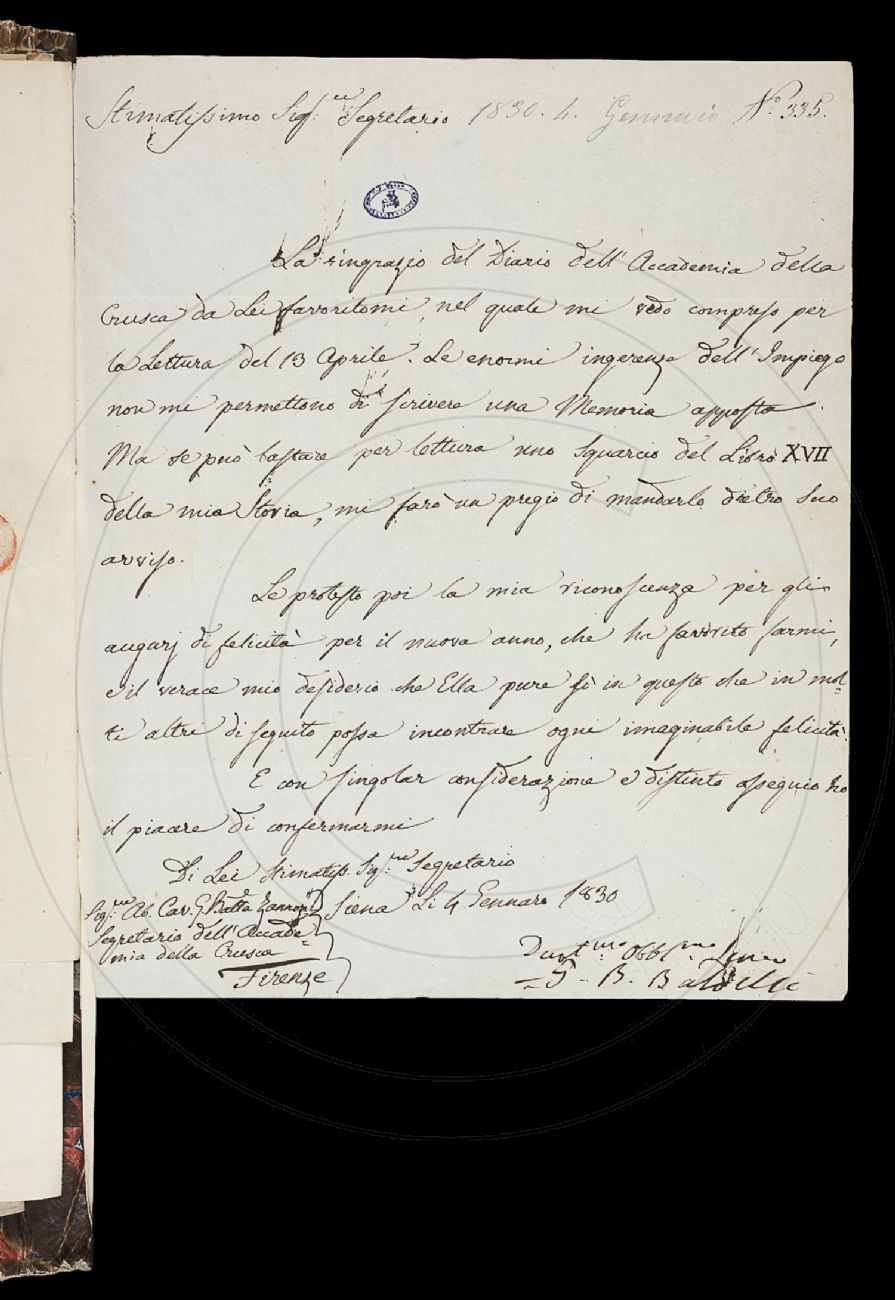 Stimatissimo Sig.re Segretario 1830. 4. Gennaio N.° 335.
La ringrazio del Diario dell'Accademia della
Crusca da Lei favoritomi, nel quale mi vedo compreso per
la Lettura del 13 Aprile. Le enormi ingerenze dell'Impiego
non mi permettono di scrivere una Memoria apposta.
Ma se può bastare per lettura uno squarcio del Libro XVII
della mia Storia, mi farò un pregio di mandarlo dietro suo
avviso.
Le protesto poi la mia riconoscenza per gli
augurj di felicità per il nuova anno, che ha favorito farmi,
e il verace mio desiderio che Ella pure sì in questo che in mol=
ti altri di seguito possa incontrare ogni imaginabile felicità.
E con singolar considerazione e distinto ossequio ho
il piacere di confermarmi
Di Lei Stimatiss. Sig.re Segretario
Siena Li 4 Gennaro 1830
Sig.re Ab. Cav. G. Batta Zannoni
Segretario dell'Accade=
mia della Crusca
Firenze
Devt.mo Obbl.mo
G. B. Baldelli